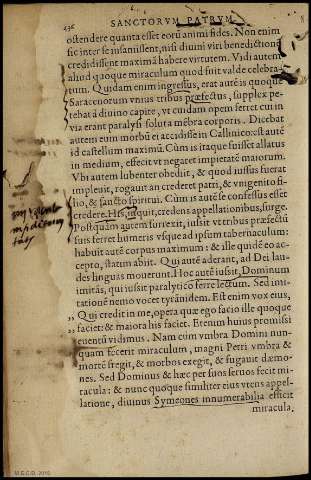 436
SANCTORVM PATRVM.
ostendere quanta esset eorū animi fides. Non enim
sic inter se insanissent, nisi diuini viri benedictionē
credidissent maximā habere virtutem. Vidi autem
aliud quoque miraculum quod fuit valde celebra-
tum. Quidam enim ingressus, erat autē is quoque
Saracenorum vnius tribus præfectus, supplex pe-
tebat à diuino capite, vt cuidam opem ferret cui in
via erant paralysi soluta mēbra corporis. Dicebat
autem eum morbū ei accidisse in Callinico: est autē
id castellum maximū. Cùm is itaque fuisset allatus
in medium, effecit vt negaret impietatē maiorum.
Vbi autem lubenter obediit, & quod iussus fuerat
impleuit, rogauit an crederet patri, & vnigenito fi-
lio, & sancto spiritui. Cùm is autē se confessus esset
credere, His, inquit, credens appellationibus, surge.
Postquam autem surrexit, iussit vt tribus præfectū
suis ferret humeris vsque ad ipsum tabernaculum:
habuit autē corpus maximum: & ille quidē eo ac-
cepto, statim abiit. Qui autē aderant, ad Dei lau-
des linguas mouerunt. Hoc autē iussit, Dominum
imitās, qui iussit paralytico ferre lectum. Sed imi-
tationē nemo vocet tyrānidem. Est enim vox eius,
„ Qui credit in me, opera quæ ego facio ille quoque
„ faciet: & maiora his faciet. Etenim huius promissi
euentū vidimus. Nam cum vmbra Domini nun-
quam fecerit miraculum, magni Petri vmbra &
mortē fregit, & morbos exegit, & fugauit dæmo-
nes. Sed Dominus & hæc per suos seruos fecit mi-
racula: & nunc quoque similiter eius vtens appel-
latione, diuinus Symeones innumerabilia efficit
miracula,
M.S.C.B. 2010